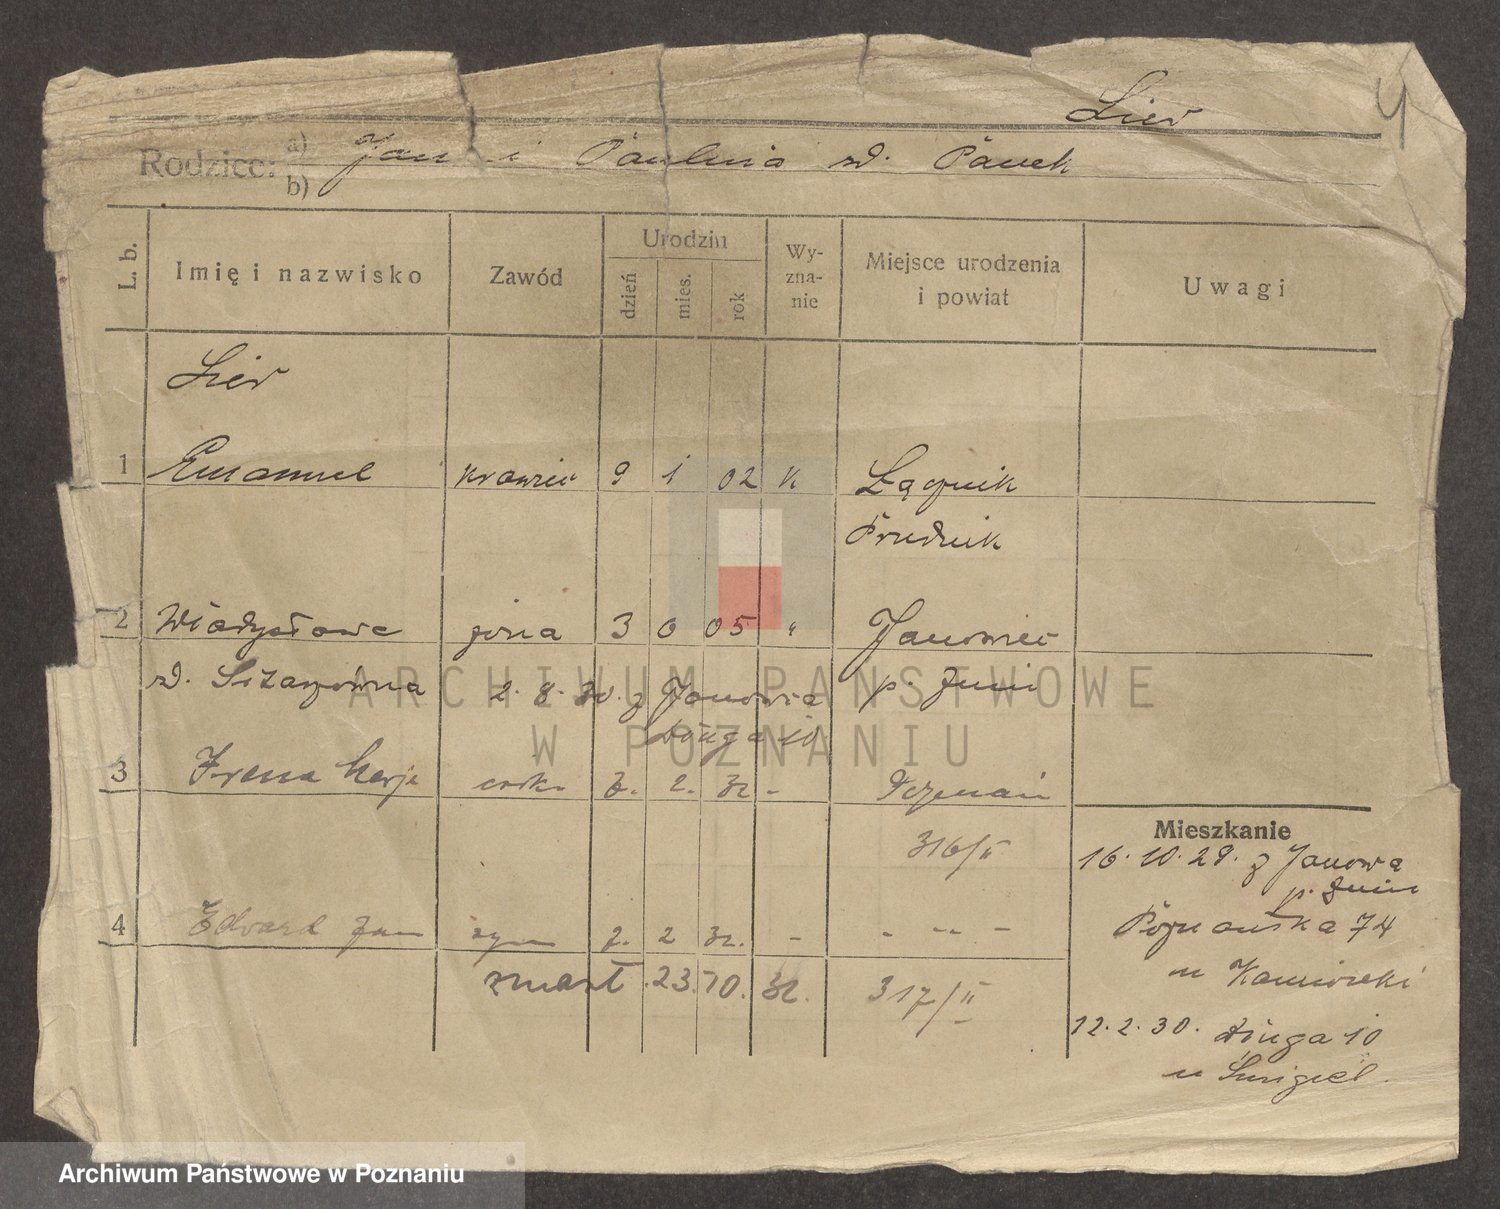 Lier
Rodzice: a) Jan i Paulina zd. Panek
b)
L. b.
Imię i nazwisko
Zawód
Urodzin
dzień
mies.
rok
Wy-
zna-
nie
Miejsce urodzenia
i powiat
Uwagi
Lier
1 Emanuel krawiec 9 1 02 k Łącznik
Prudnik
2 Władysława żona 3 6 05 " Janowiec
p. Żnin
2. 8. 30. z Janowca
Długa 10
3 Irena Marja córk. 2. 32 - Poznań
316/II
Mieszkanie
16. 10. 29. z Janowa
p. Żnin
Poznańska 74
u
4 Edward Jan syn 2 32. - - -"- -
zmarł 23. 10. 32. 317/II
12. 2. 30. Długa 10
u Śmigiel.
ARCHIWUM PAŃSTWOWE
W POZNANIU
Archiwum Państwowe w Poznaniu